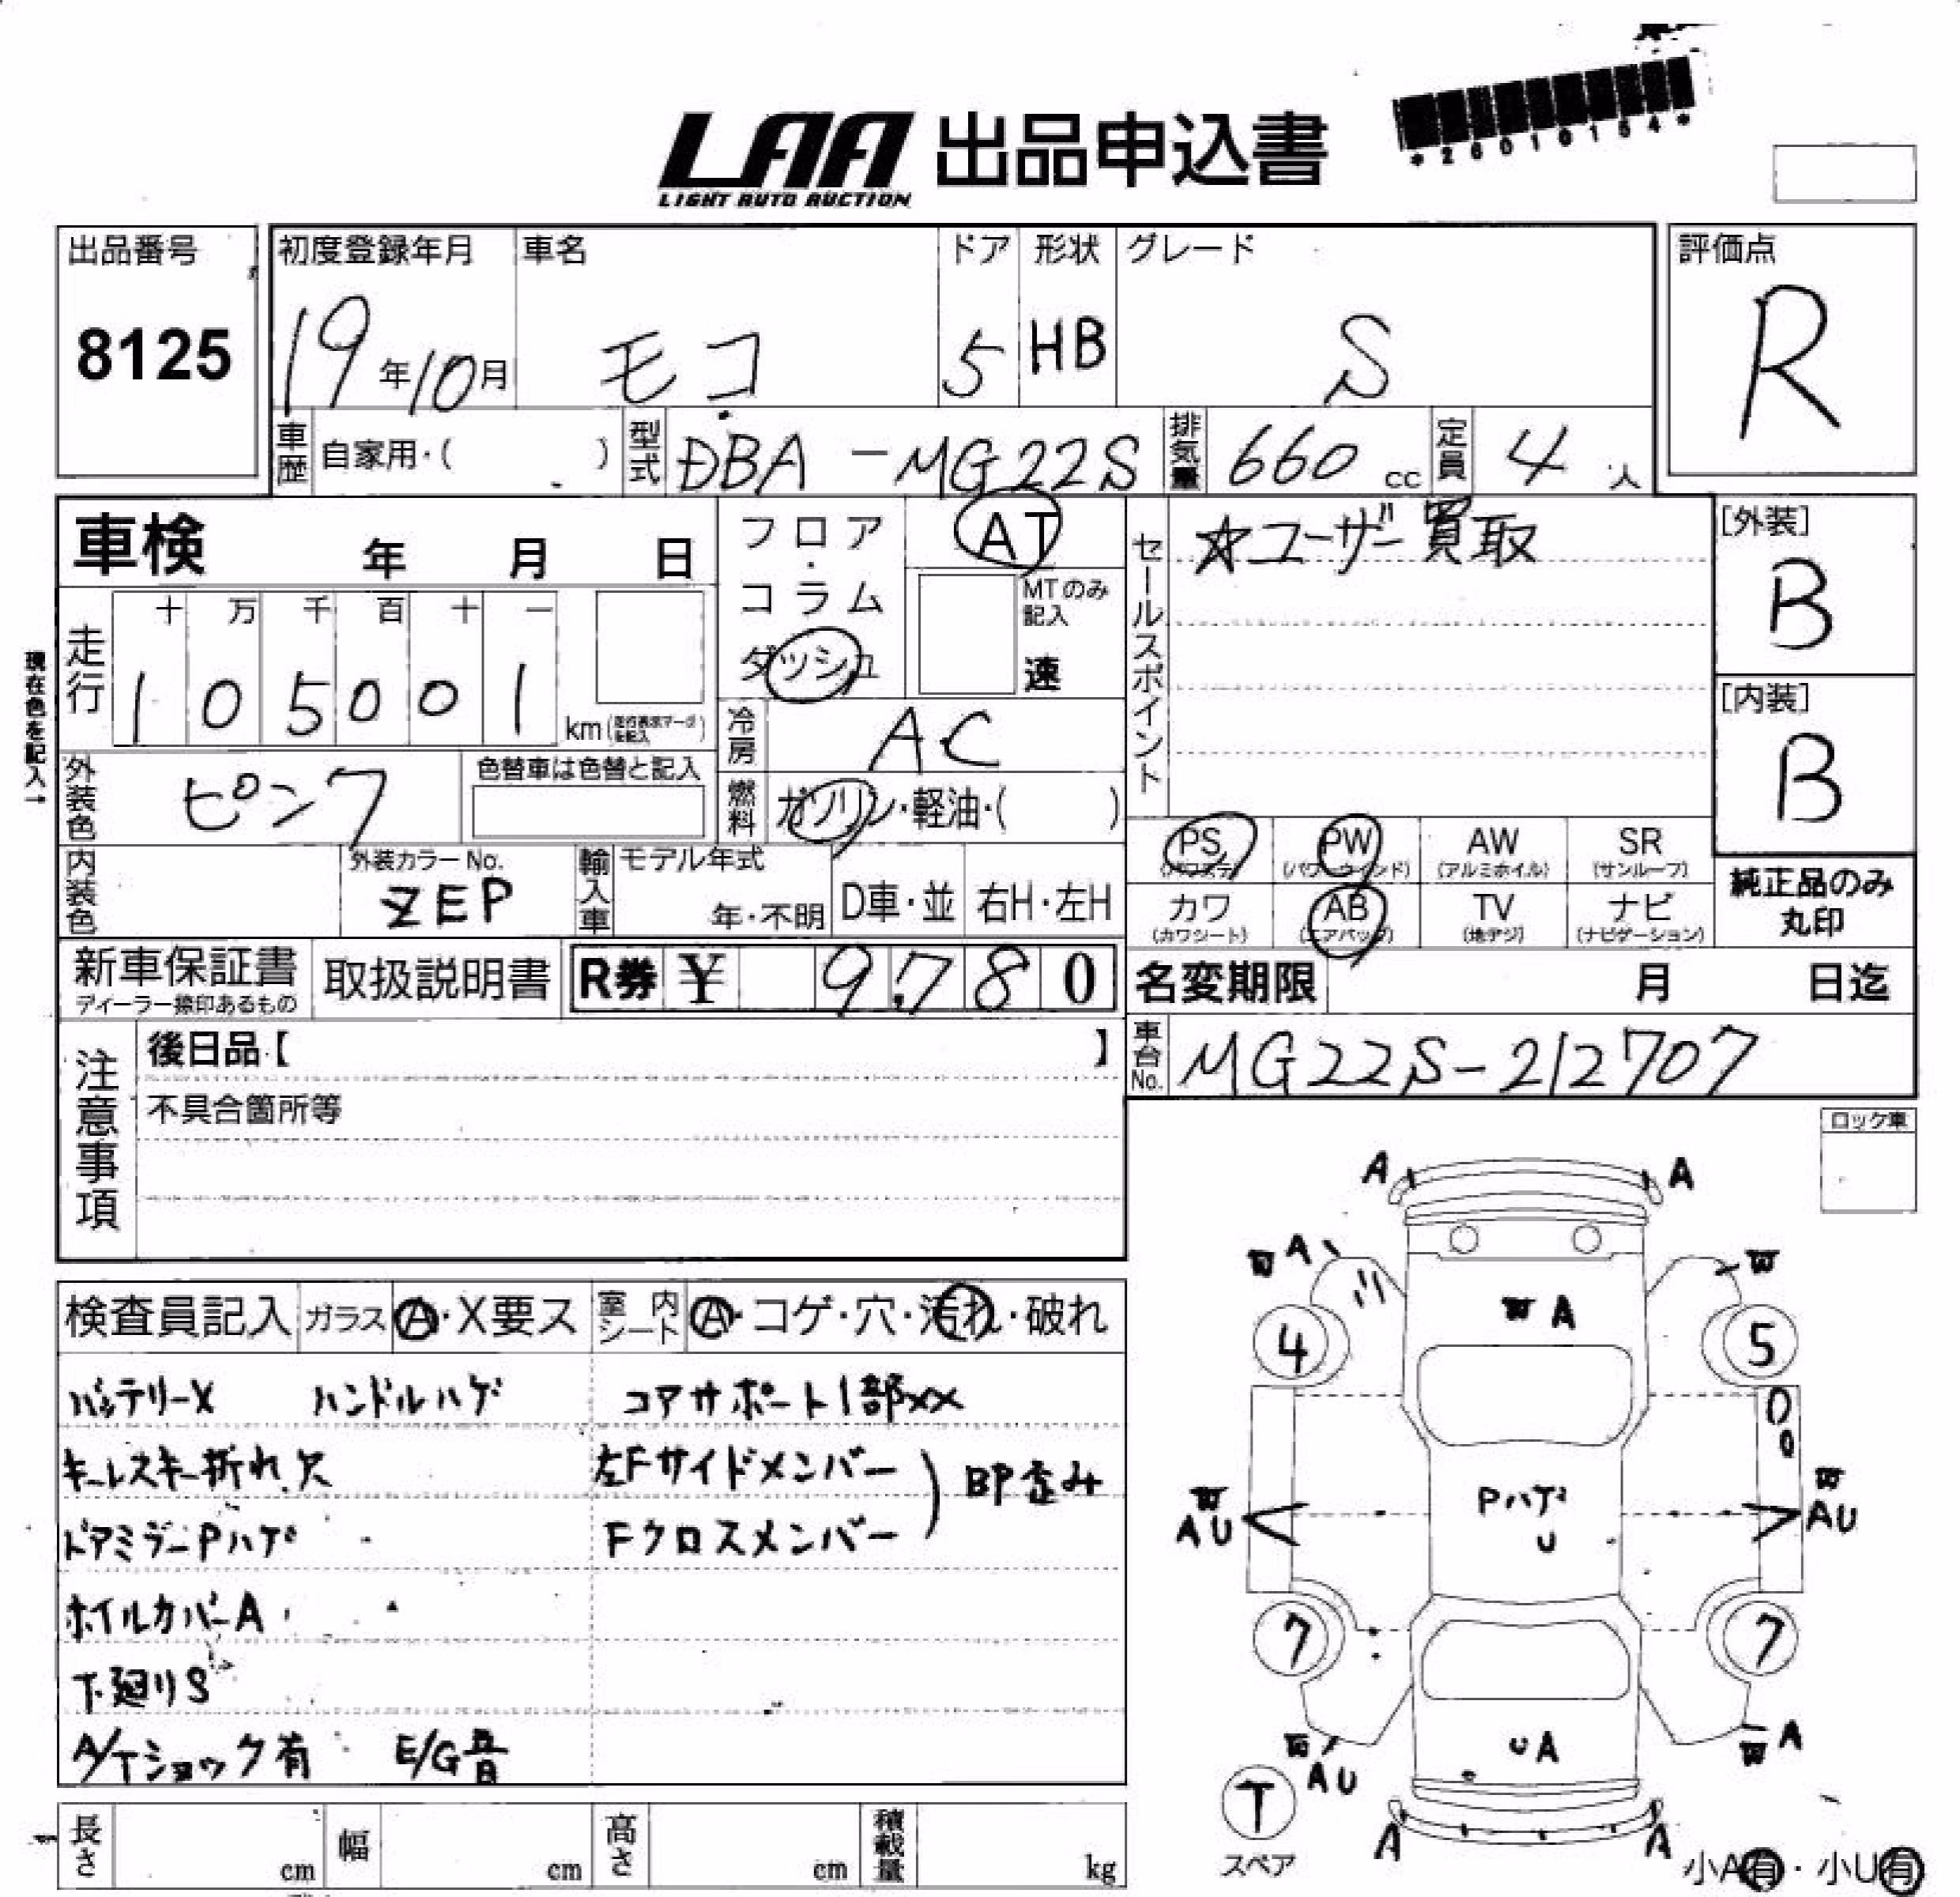 LAA 出品申込書
LIGHT AUTO AUCTION
*26010154*
出品番号
8125
初度登録年月
19年10月
車名
モコ
ドア
5
形状
HB
グレード
S
評価点
R
車歴 自家用・( )
型式 DBA-MG22S
排気量 660 cc
定員 4人
車検 年 月 日
フロア・コラム
ダッシュ
AT
MTのみ記入
速
セールスポイント
☆ユーザー買取
[外装]
B
[内装]
B
現在色を記入→
走行
十 万 千 百 十 一
1 0 5 0 0 1
km
冷房 AC
外装色 ピンク
色替車は色替と記入
燃料 ガソリン・軽油・( )
内装色
外装カラーNo.
ZEP
輸入車
モデル年式
年・不明
D車・並
右H・左H
PS
(パワステ)
PW
(パワーウインド)
AW
(アルミホイル)
SR
(サンルーフ)
カワ
(カワシート)
AB
(エアバッグ)
TV
(地デジ)
ナビ
(ナビゲーション)
純正品のみ
丸印
新車保証書
ディーラー捺印あるもの
取扱説明書
R券 ¥ 9,780
名変期限 月 日迄
車台No. MG22S-212707
注意事項
後日品【 】
不具合箇所等
ロック車
検査員記入
ガラス A・X要ス
室内シート A・コゲ・穴・汚れ・破れ
バッテリーX ハンドルハゲ コアサポート1部XX
キーレスキー折れ、欠 左Fサイドメンバー
BP歪み
ドアミラーPハゲ Fクロスメンバー
ホイルカバーA
下廻りS
A/Tショック有 E/G音
A A
W A W
W A
4 5
W W
AU AU
Pハゲ
U
7 7
W
AU
UA
W A
T
スペア
A A
小A有・小U有
長さ cm
幅 cm
高さ cm
積載量 kg